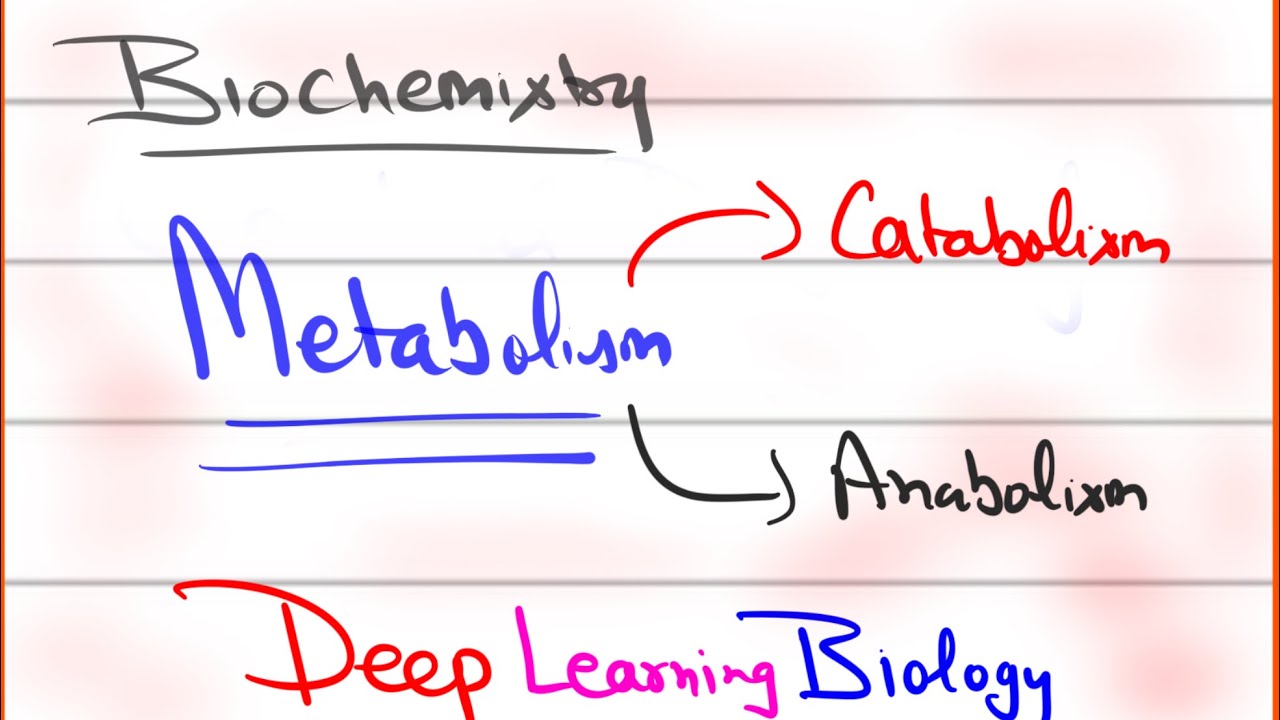 Biochemistry
Metabolism
Catabolism
Anabolism
Deep Learning Biology